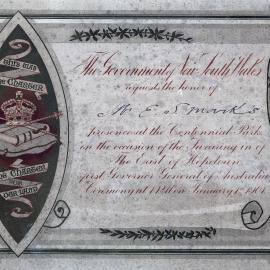 The Government of New South Wales
requests the honor of
Mr E S Marks
presence at the Centennial Park
on the occasion of the Swearing in of
The Earl of Hopetoun
first Governor General of Australia
Ceremony at 1 P.M. on January 1st 1901.